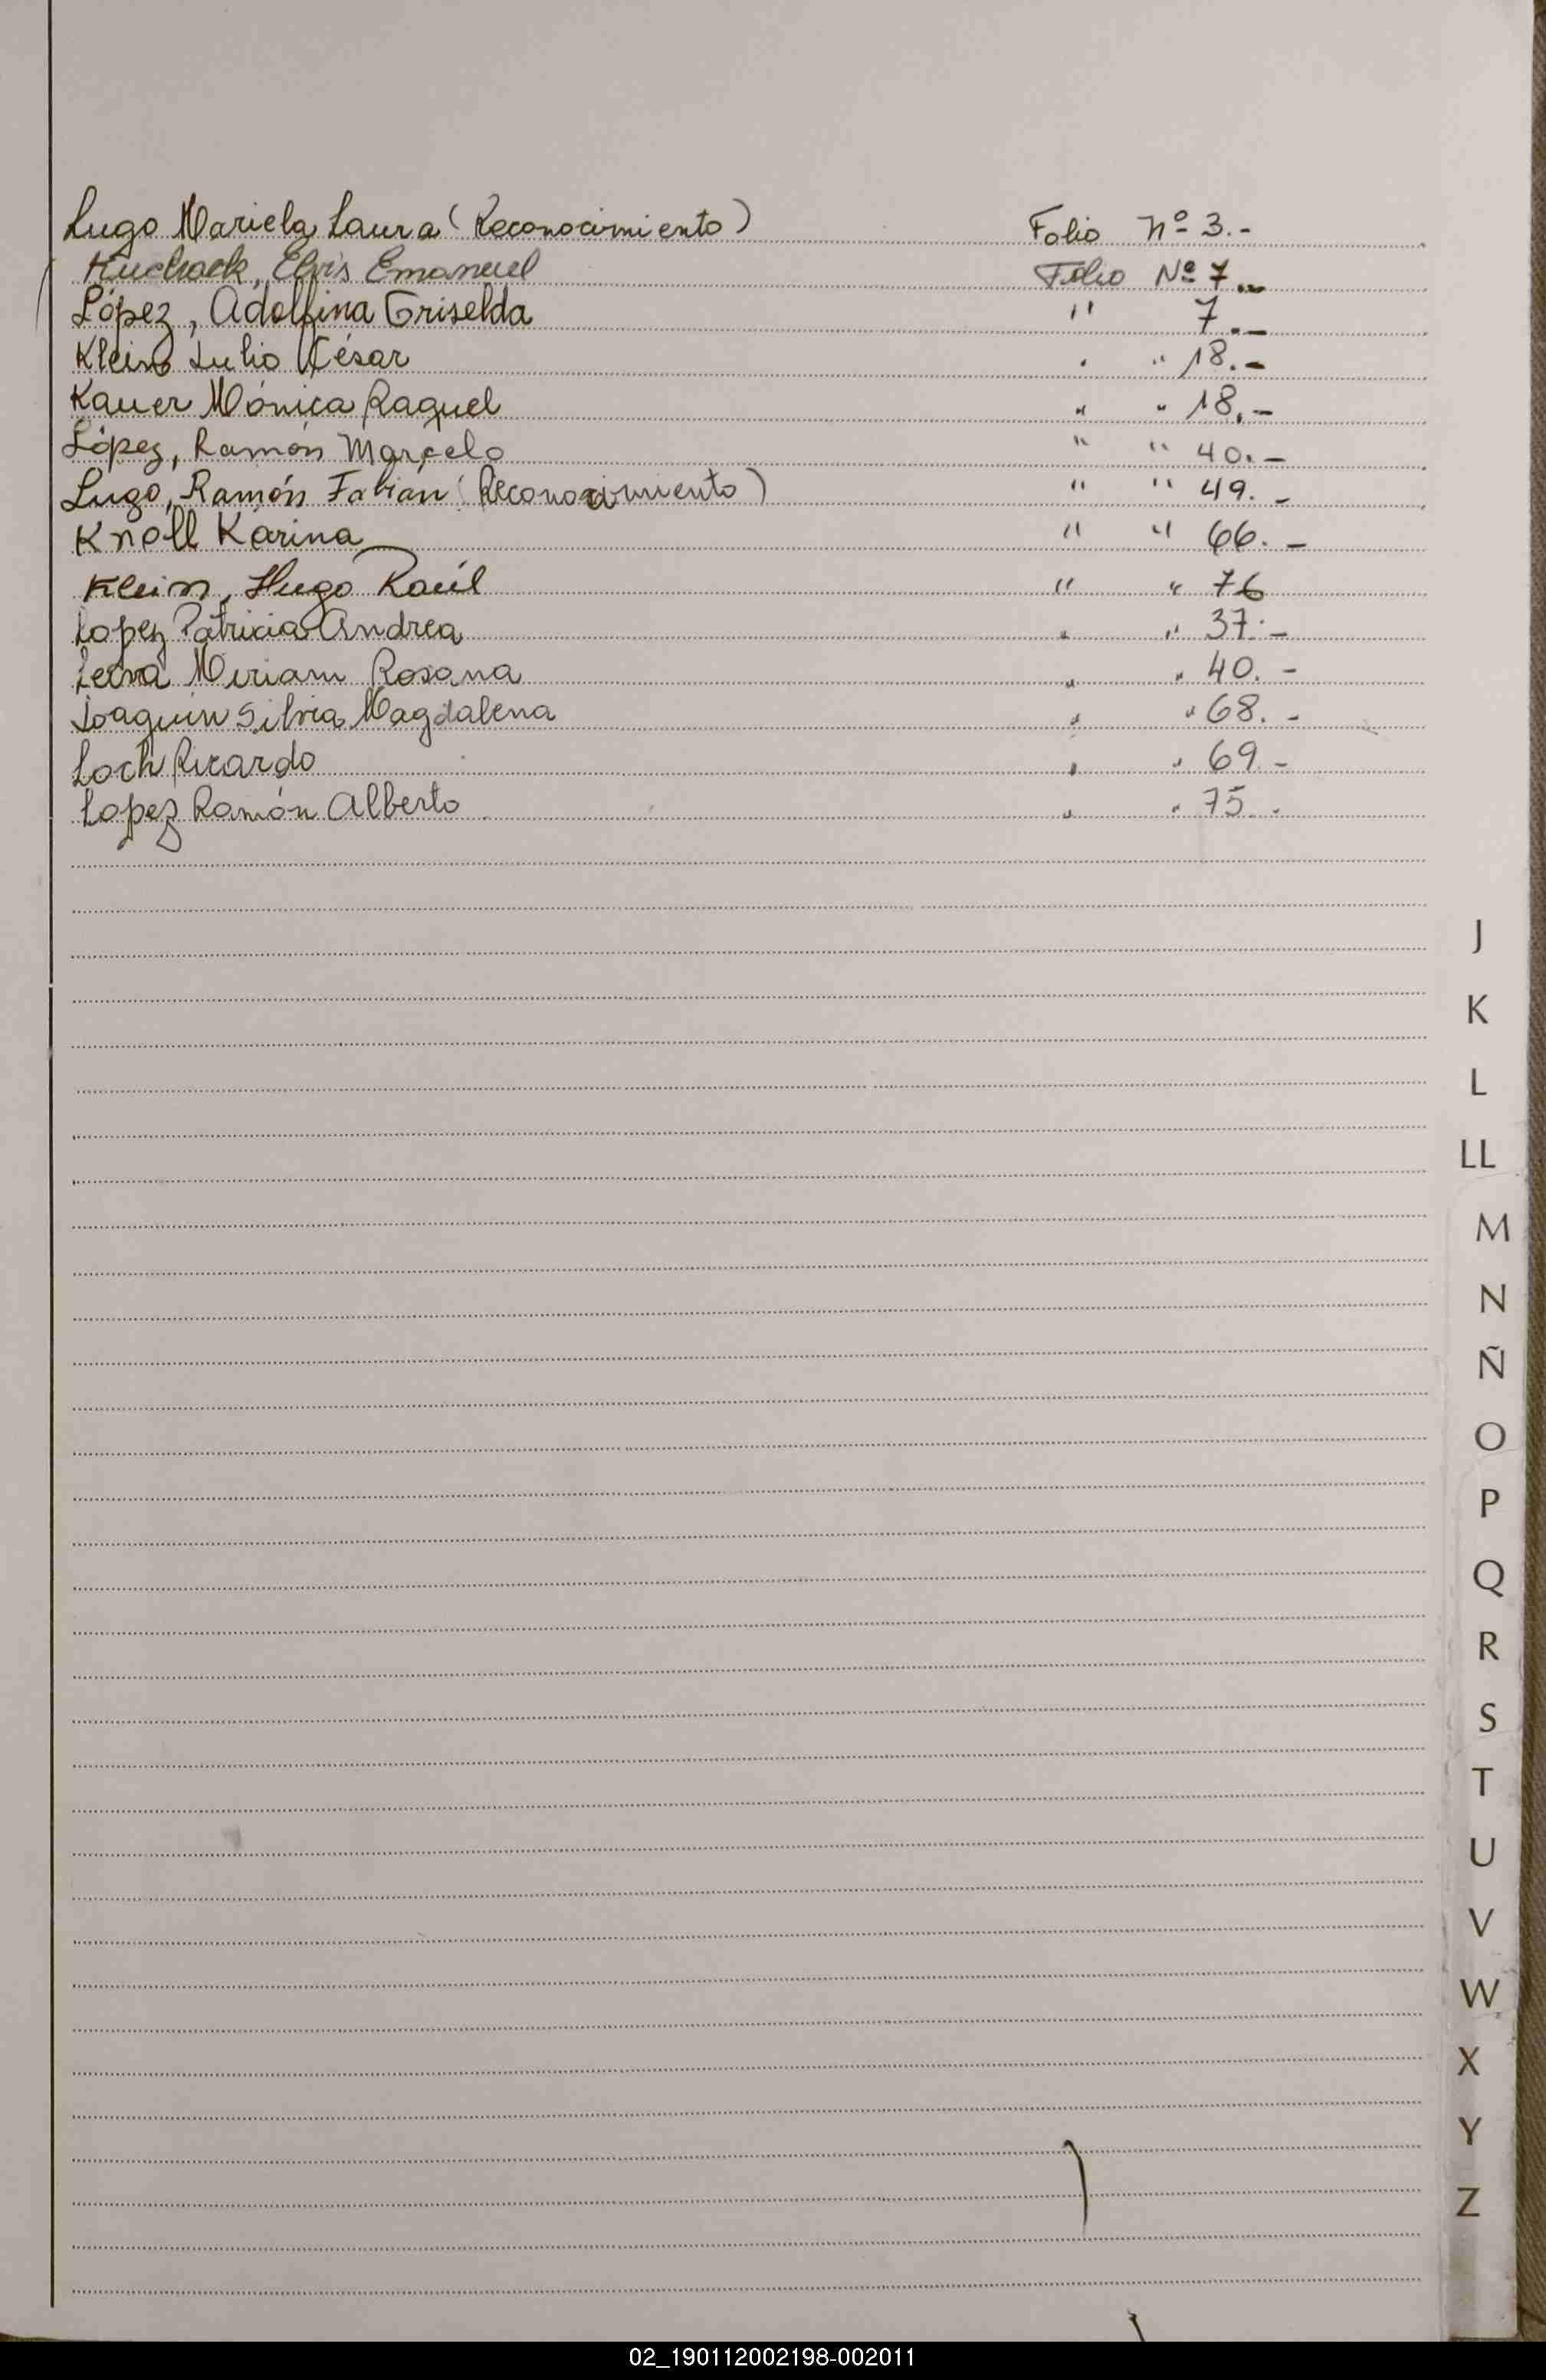 Lugo Mariela Laura (Reconocimiento) Folio Nº 3.-
Kuchack, Elvis Emanuel Folio Nº 7.-
López, Adolfina Griselda " 7.-
Klein Julio César " " 18.-
Kauer Mónica Raquel " " 18.-
López, Ramón Marcelo " " 40.-
Lugo, Ramón Fabian (Reconocimiento) " " 49.-
Knoll Karina " " 66.-
Klein, Hugo Raúl " " 76
Lopez Patricia Andrea " " 37.-
Leiva Miriam Rosana " " 40.-
Joaquin Silvia Magdalena " " 68.-
Loch Ricardo " " 69.-
Lopez Ramón Alberto " " 75.-
J
K
L
LL
M
N
Ñ
O
P
Q
R
S
T
U
V
W
X
Y
Z
02_190112002198-002011